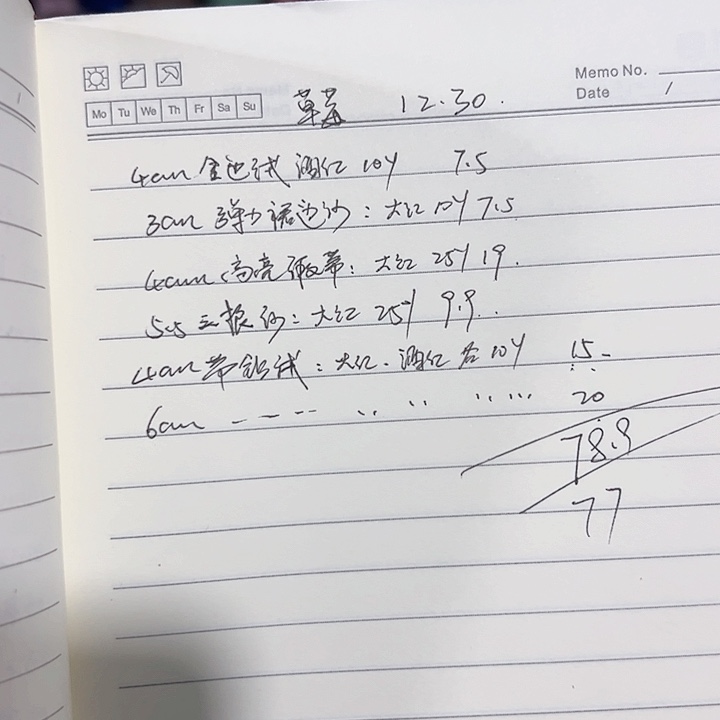 Memo No.
Mo Tu We Th Fr Sa Su
Date /
草莓 12.30.
4cm 金边绒 酒红 10Y 7.5
3cm 弹力裙边纱：大红 10Y 7.5
4cm 高亮 ：大红 25Y 19.
5.5 纱：大红 25Y 9.9.
4cm 带 绒：大红、酒红 各 10Y 15-
6cm ---- 20
78.9
77